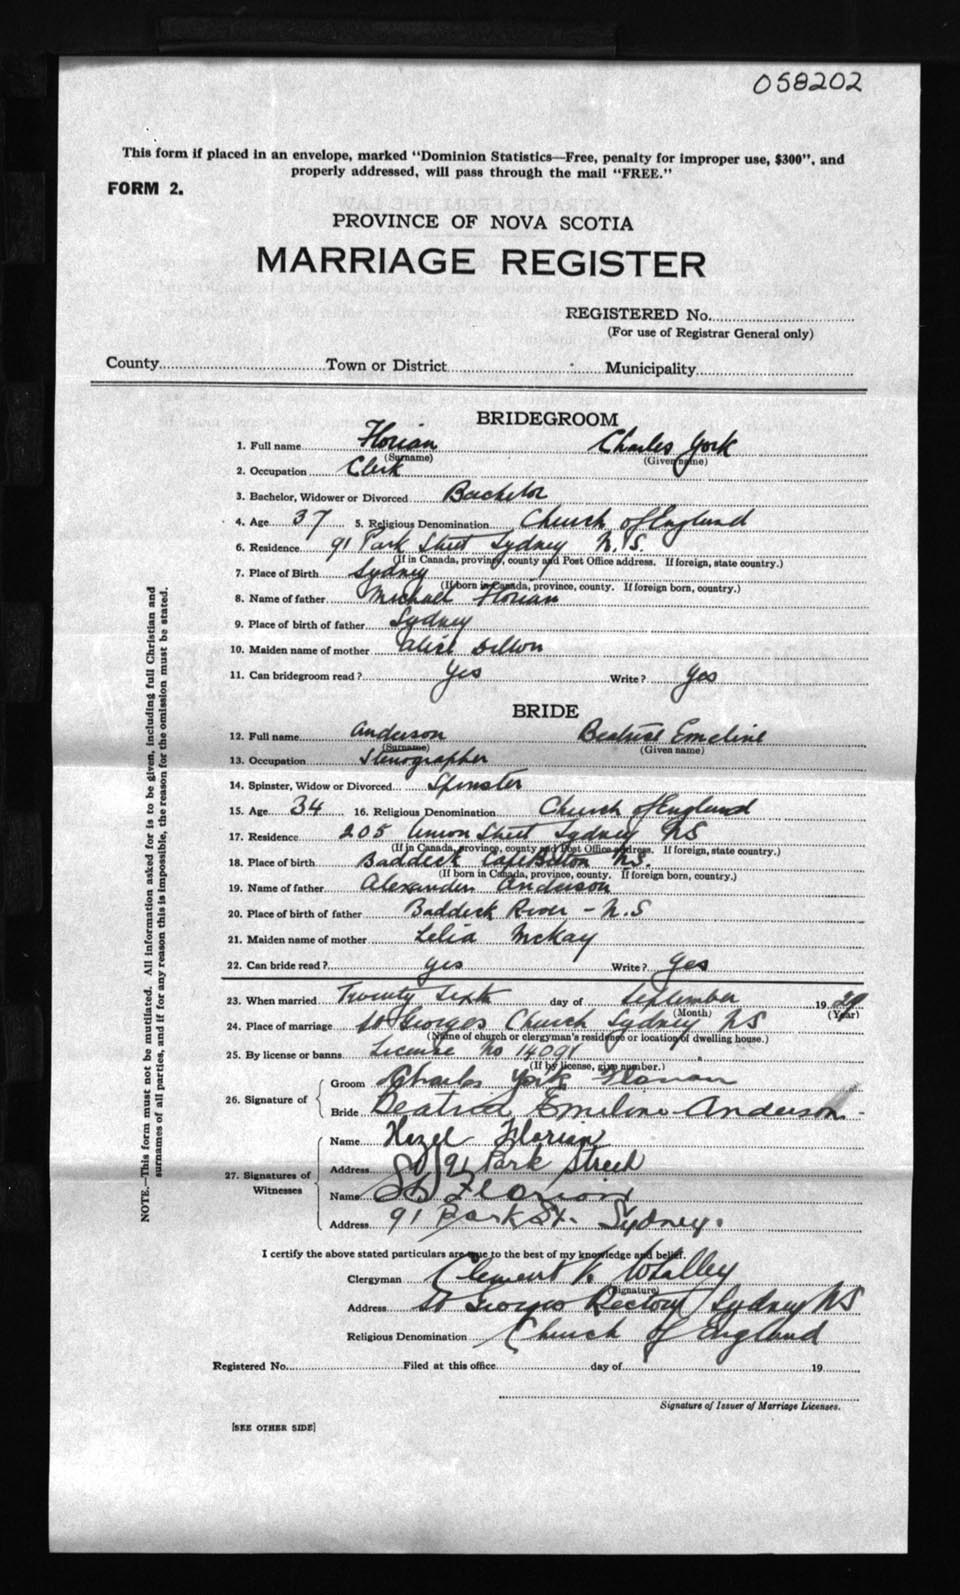 058202
This form if placed in an envelope, marked "Dominion Statistics—Free, penalty for improper use, $300", and
properly addressed, will pass through the mail "FREE."
FORM 2.
PROVINCE OF NOVA SCOTIA
MARRIAGE REGISTER
REGISTERED No.
(For use of Registrar General only)
County Town or District Municipality
BRIDEGROOM
1. Full name Florian Charles York
(Surname) (Given name)
2. Occupation Clerk
3. Bachelor, Widower or Divorced Bachelor
4. Age 37 5. Religious Denomination Church of England
6. Residence 91 Park Street Sydney N.S.
(If in Canada, province, county and Post Office address. If foreign, state country.)
7. Place of Birth Sydney
(If born in Canada, province, county. If foreign born, country.)
8. Name of father Michael Florian
9. Place of birth of father Sydney
10. Maiden name of mother Alice Dillon
11. Can bridegroom read? Yes Write? Yes
BRIDE
12. Full name Anderson Beatrice Emeline
(Surname) (Given name)
13. Occupation Stenographer
14. Spinster, Widow or Divorced Spinster
15. Age 34 16. Religious Denomination Church of England
17. Residence 205 Union Street Sydney NS
(If in Canada, province, county and Post Office address. If foreign, state country.)
18. Place of birth Baddeck Cape Breton N.S.
(If born in Canada, province, county. If foreign born, country.)
19. Name of father Alexander Anderson
20. Place of birth of father Baddeck River - N.S
21. Maiden name of mother Lelia McKay
22. Can bride read? yes Write? Yes
23. When married Twenty Sixth day of September 19 29
(Month) (Year)
24. Place of marriage St Georges Church Sydney NS
(Name of church or clergyman's residence or location of dwelling house.)
25. By license or banns License No 14091
(If by license, give number.)
26. Signature of
Groom Charles York Florian
Bride Beatrice Emeline Anderson
27. Signatures of Witnesses
Name Hazel Florian
Address 91 Park Street
Name Florian
Address 91 Park St. Sydney.
I certify the above stated particulars are true to the best of my knowledge and belief.
Clergyman Clement V. Whalley
(Signature)
Address St Georges Rectory Sydney NS
Religious Denomination Church of England
Registered No. Filed at this office day of 19
Signature of Issuer of Marriage Licenses.
[SEE OTHER SIDE]
NOTE.—This form must not be mutilated. All information asked for is to be given, including full Christian and
surnames of all parties, and if for any reason this is impossible, the reason for the omission must be stated.